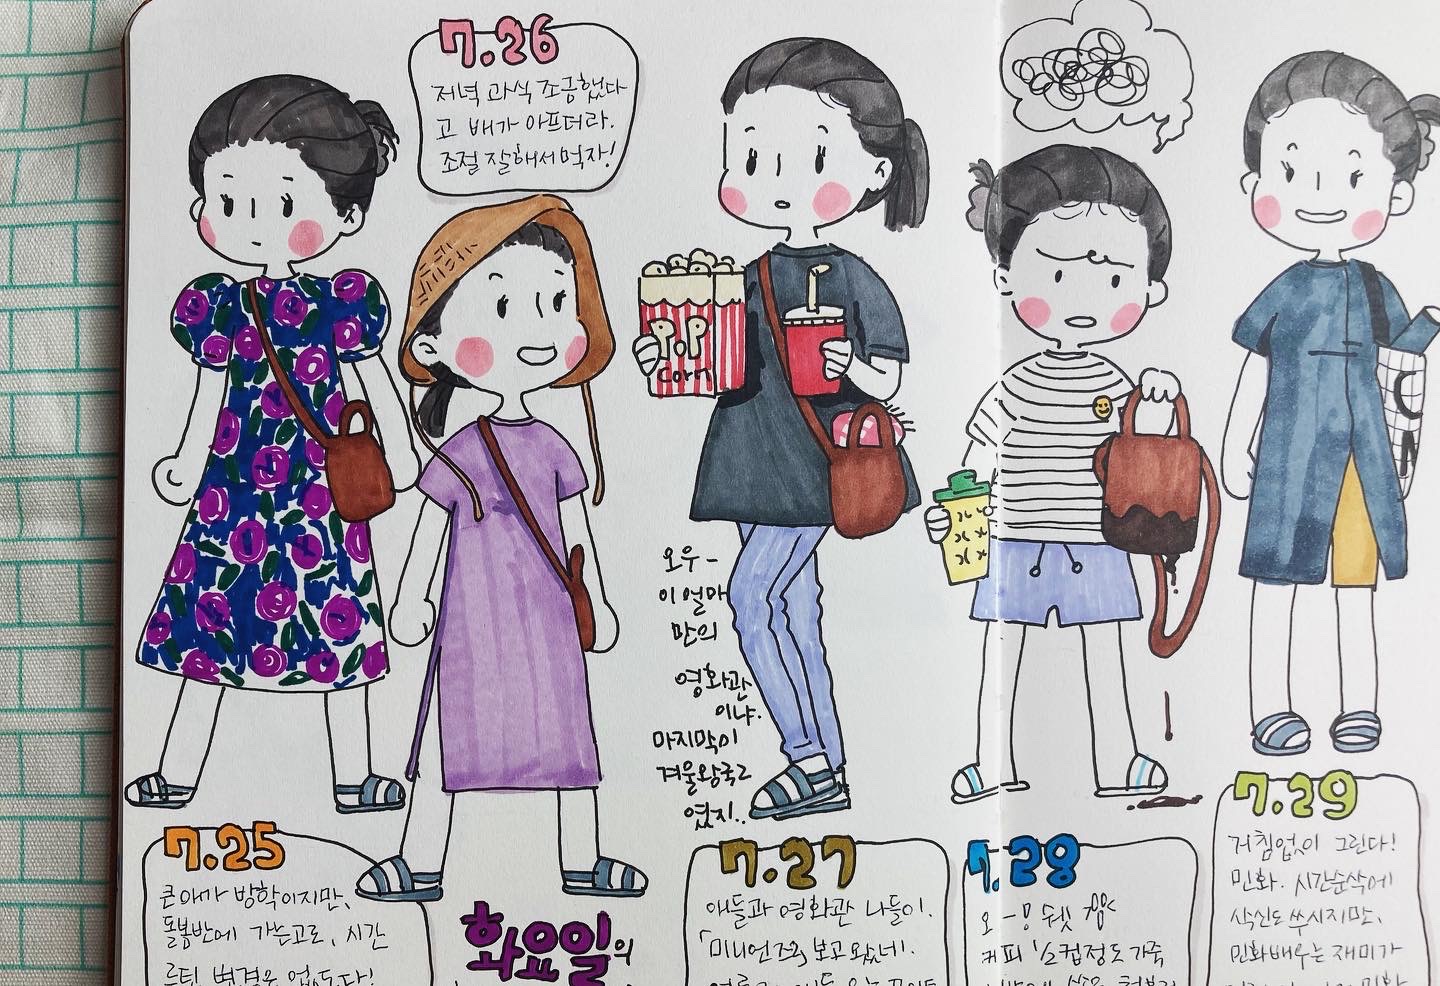 7.26
저녁 과식 조금했다
고 배가 아프더라.
조절 잘해서 먹자!
POP
corn
오우-
이 얼마
만의
영화관
이냐.
마지막이
겨울왕국2
였지..
7.25
큰애가 방학이지만,
돌봄반에 가는고로, 시간
루틴 변경은 없도다!
화요일의
7.27
애들과 영화관 나들이.
「미니언즈2」 보고 왔네!
7.28
오-마 쉣
커피 1/2컵정도 가죽
7.29
거침없이 그린다!
민화. 시간순삭에
삭신도 쑤시지만,
민화배우는 재미가